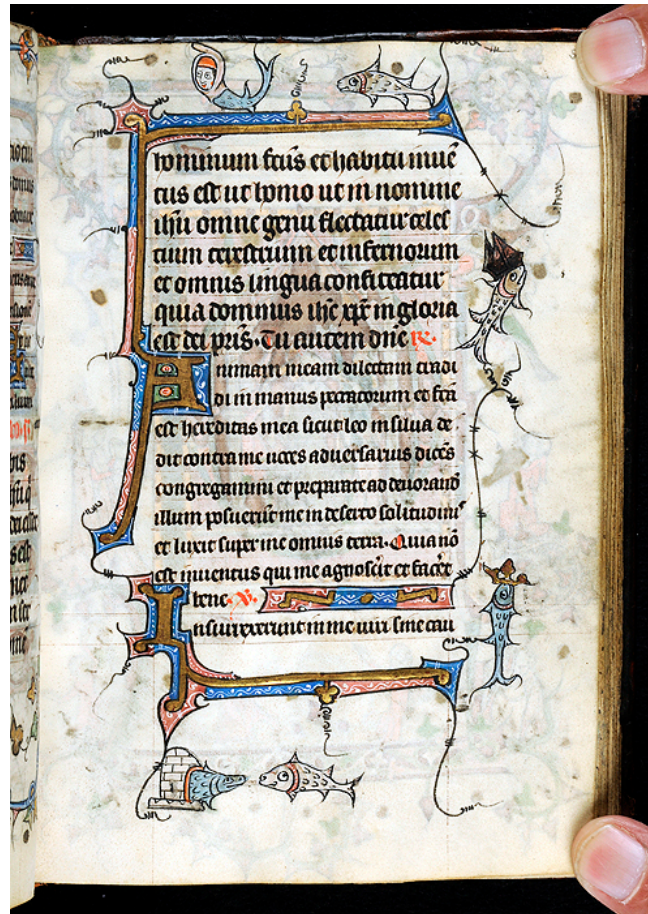 hominum fcūs et habitu inuē
tus est ut homo ut in nomine
ihū omne genu flectatur celes
tium terestrium et infernorum
et omnis lingua confiteatur
quia dominus ihc xpc in gloria
est dei pris. Tu autem dnē R.
Animam meam dilectam tradi
di in manus peccatorum et fcā
est hereditas mea sicut leo in silua de
dit contra me uoces aduersarius dicēs
congregamini et preparate ad deuorandū
illum posuerūt me in deserto solitudinis
et luxit super me omnis terra. Quia nō
est inuentus qui me agnoscēt et facēt
bene. V.
Insurrexerunt in me uiri sine cau